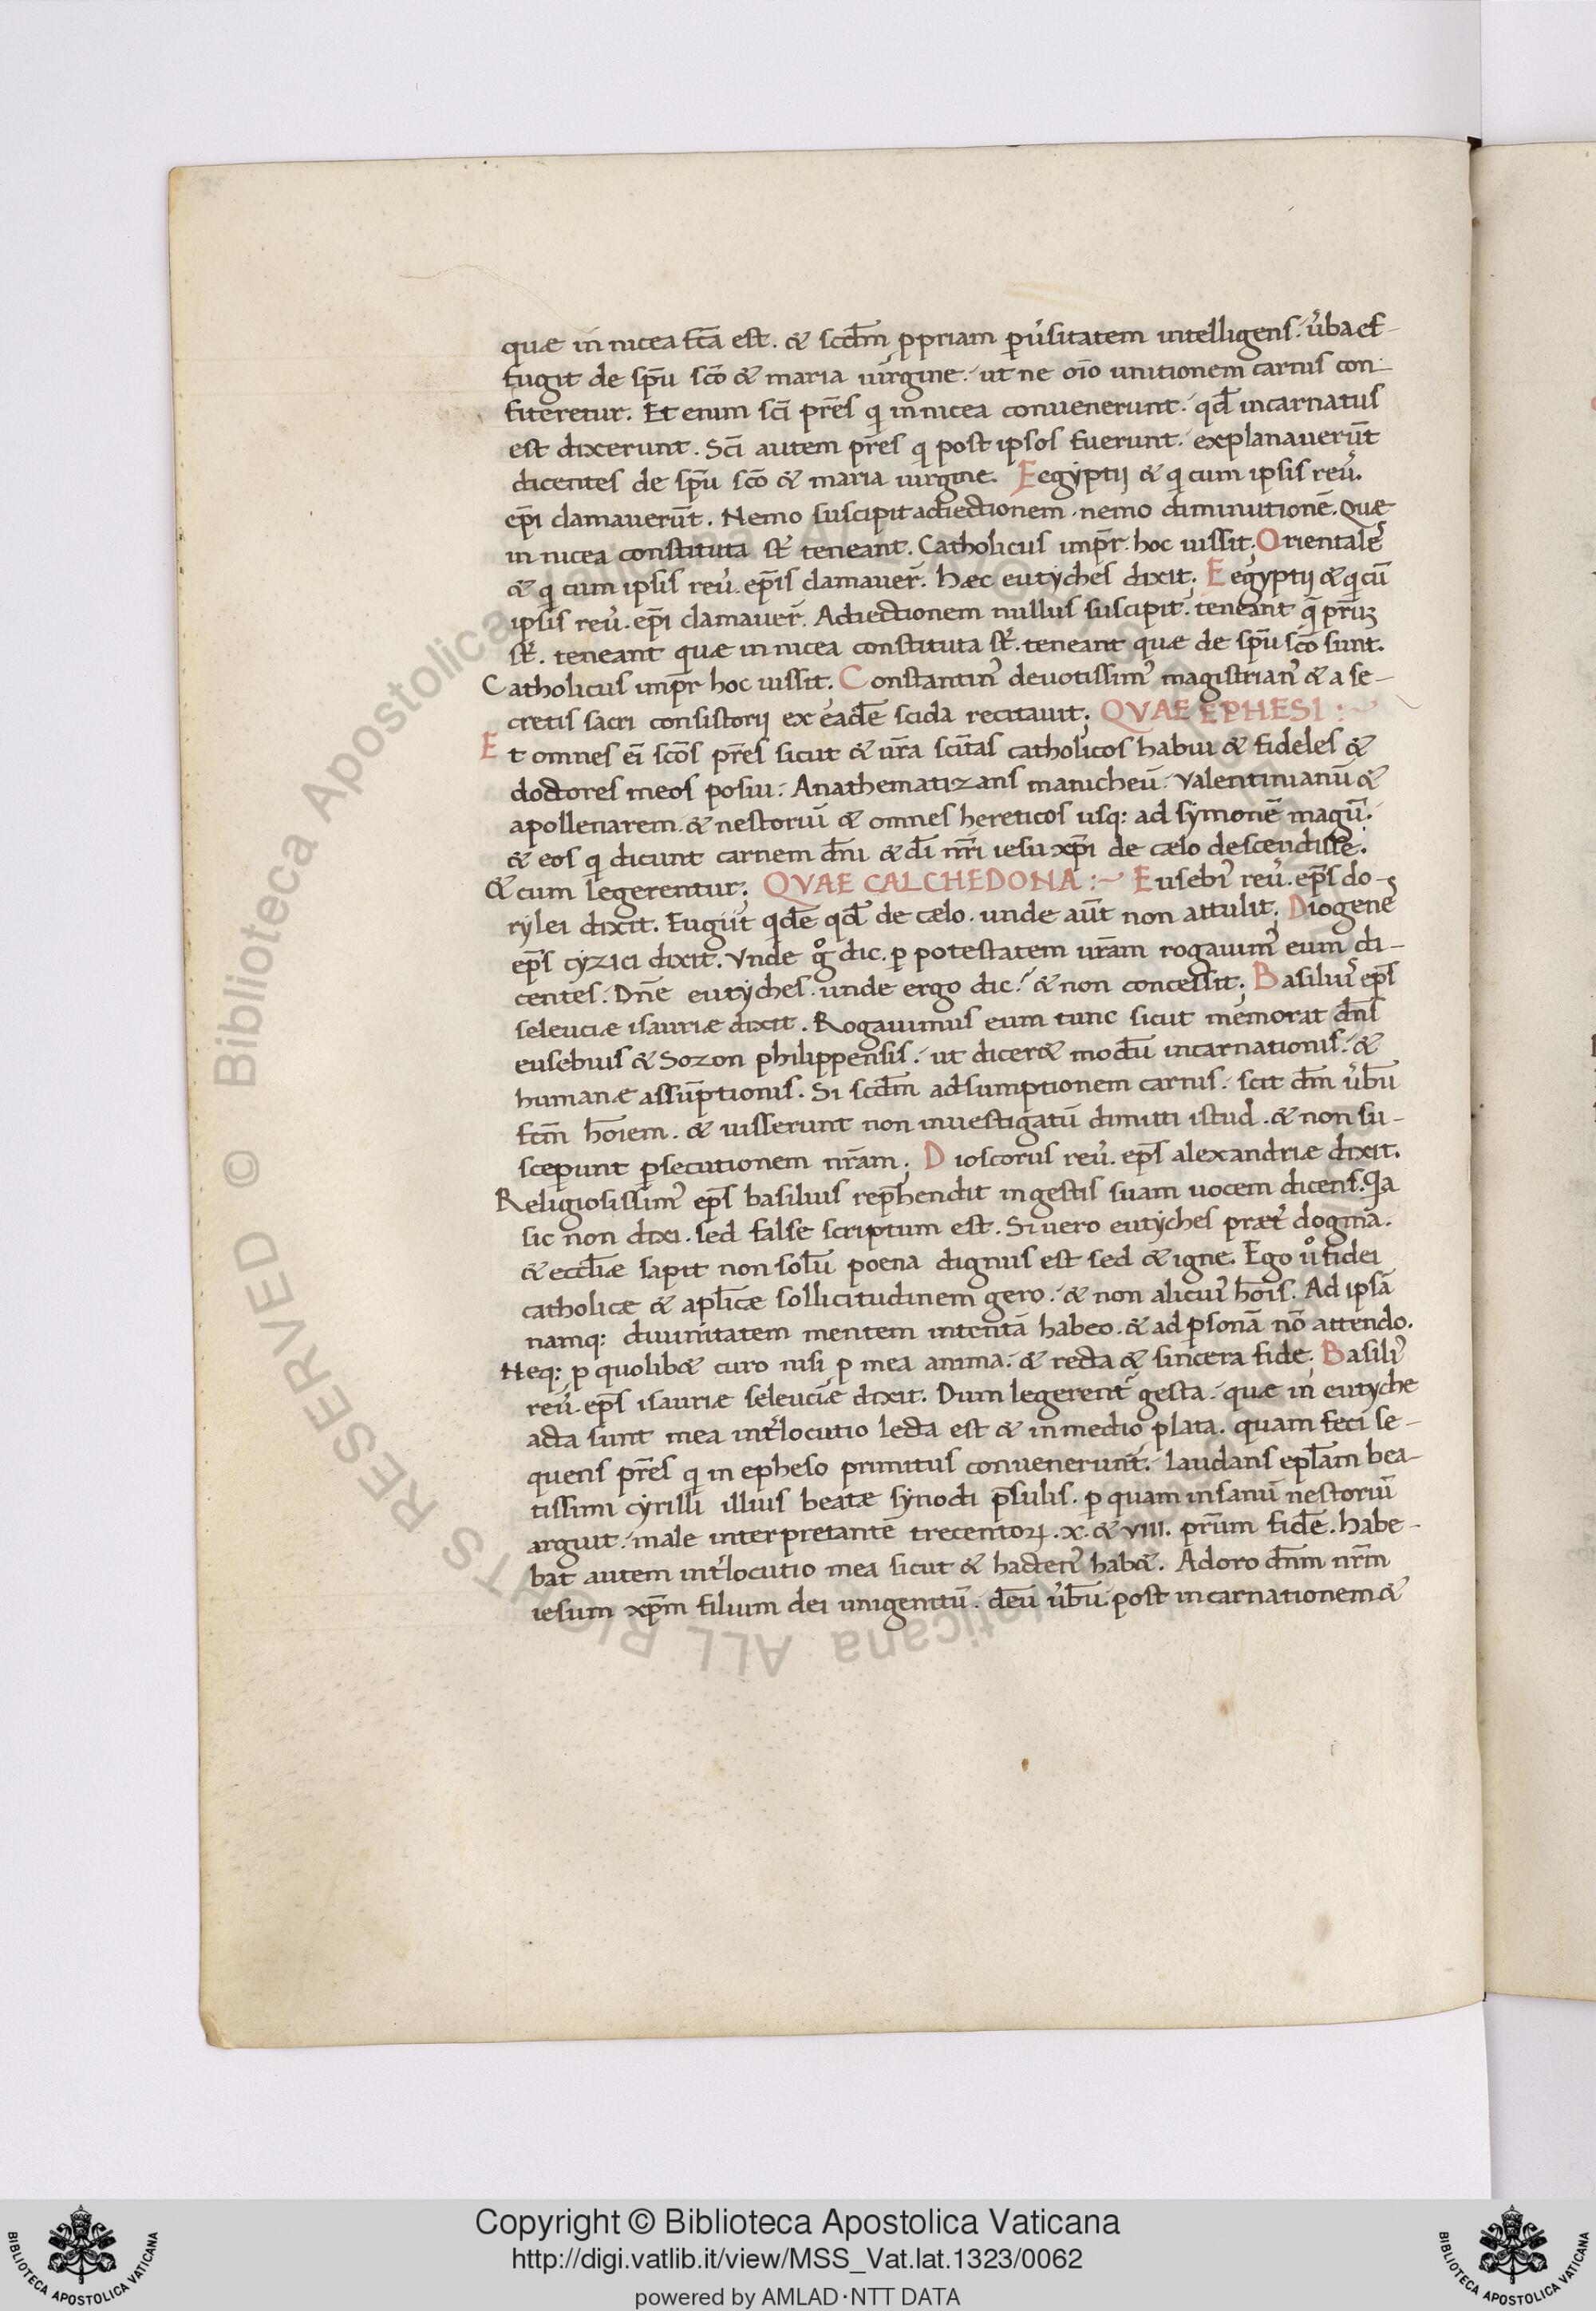 quæ in nicea fc̄a est. & scđm ꝓpriam ꝑuˀsitatem intelligens. uˀba ef-
fugit de sp̄u sc̄o & maria uirgine. ut ne oīo unitionem carnis con-
fiteretur. Et enim sc̄i pr̄es qi in nicea convenerunt. qđ incarnatus
est dixerunt. Sc̄i autem pr̄es qi post ipsos fuerunt. explanauerūt
dicentes de sp̄u sc̄o & maria uirgine. Eegyptij & qi cum ipsis reuˀ.
ep̄i clamauerūt. Nemo suscipit adiectionem. nemo diminutionē. Quæ
in nicea constituta st̄ teneant. Catholicus imp̄r. hoc iussit. Orientales
& qi cum ipsis reuˀ. ep̄is clamauer̄. Hæc eutyches dixit. Eegyptij & qi cū
ipsis reuˀ. ep̄i clamauer̄. Adiectionem nullus suscipit. teneant q̄ pr̄uꝫ
st̄. teneant quæ in nicea constituta st̄. teneant quæ de sp̄u sc̄o sunt.
Catholicus imp̄r hoc iussit. Constantinˀ deuotissimˀ magistrianˀ & a se-
cretis sacri consistorij ex eadē scida recitauit; QVAE EPHESI :~
Et omnes eī sc̄os pr̄es sicut & ur̄a sc̄itas catholicos habui & fideles &
doctores meos posui. Anathematizans manicheū. Valentinianū &
apollenarem. & nestoriū & omnes hereticos usq: ad symonē magū.
& eos qi dicunt carnem dn̄i & di̅ nr̄i iesu xp̄i de cælo descendisse.
& cum legerentur; QVAE CALCHEDONA :~ Eusebiˀ reuˀ. ep̄s do-
rylei dixit. Fugiit qdē qđ de cælo. unde aūt non attulit; Diogenes
ep̄s cyzici dixit. Vnde gͦ dic. ꝑ potestatem ur̄am rogauimˀ eum di-
centes. Dn̄e eutyches. unde ergo dic.? & non concessit; Basiliuˀ ep̄s
seleuciæ isauriæ dixit. Rogauimus eum tunc sicut memorat dn̄s
eusebius & Sozon philippensis. ut dicer& modū incarnationis. &
humanæ assūptionis. Si scđm adsumptionem carnis. scit dm̄ uˀbū
fcm̄ hōiem. & uisserunt non inuestigatū dimitti istud. & non su-
scepunt ꝑsecutionem nr̄am; Dioscorus reuˀ. ep̄s alexandriæ dixit.
Religiosissimˀ ep̄s basilius rep̄hendit in gestis suam uocem dicens. Qa
sic non dixi. sed false scriptum est. Si uero eutyches præt̄ dogma.
& eccl̄iæ sapit non solū poena dignus est sed & igne. Ego uͦ fidei
catholicæ & apl̄icæ sollicitudinem gero. & non alicuiˀ hōis. Ad ipsā
namq: diuinitatem mentem intentā habeo. & ad ꝑsonā nō attendo.
Neq: ꝑ quolib& curo nisi ꝑ mea anima. & recta & sincera fide. Basiliˀ
reuˀ. ep̄s isauriæ seleuciæ dixit. Dum legerentˀ gesta. quæ in eutyche
acta sunt mea int̄locutio lecta est & in medio ꝓlata. quam feci se-
quens pr̄es qi in epheso primitus convenerunt. laudans epl̄am bea-
tissimi cyrilli illius beatæ synodi p̄sulis. ꝑ quam insanū nestoriū
arguit. male interpretantē trecentoꝝ. x. & VIII. pr̄um fidē. habe-
bat autem int̄locutio mea sicut & hactenˀ hab&. Adoro dn̄m nr̄m
iesum xp̄m filium dei unigenitū. deū uˀbū. post incarnationem &
Copyright © Biblioteca Apostolica Vaticana
http://digi.vatlib.it/view/MSS_Vat.lat.1323/0062
powered by AMLAD·NTT DATA
© Biblioteca Apostolica Vaticana ALL RIGHTS RESERVED
BIBLIOTECA APOSTOLICA VATICANA
BIBLIOTECA APOSTOLICA VATICANA